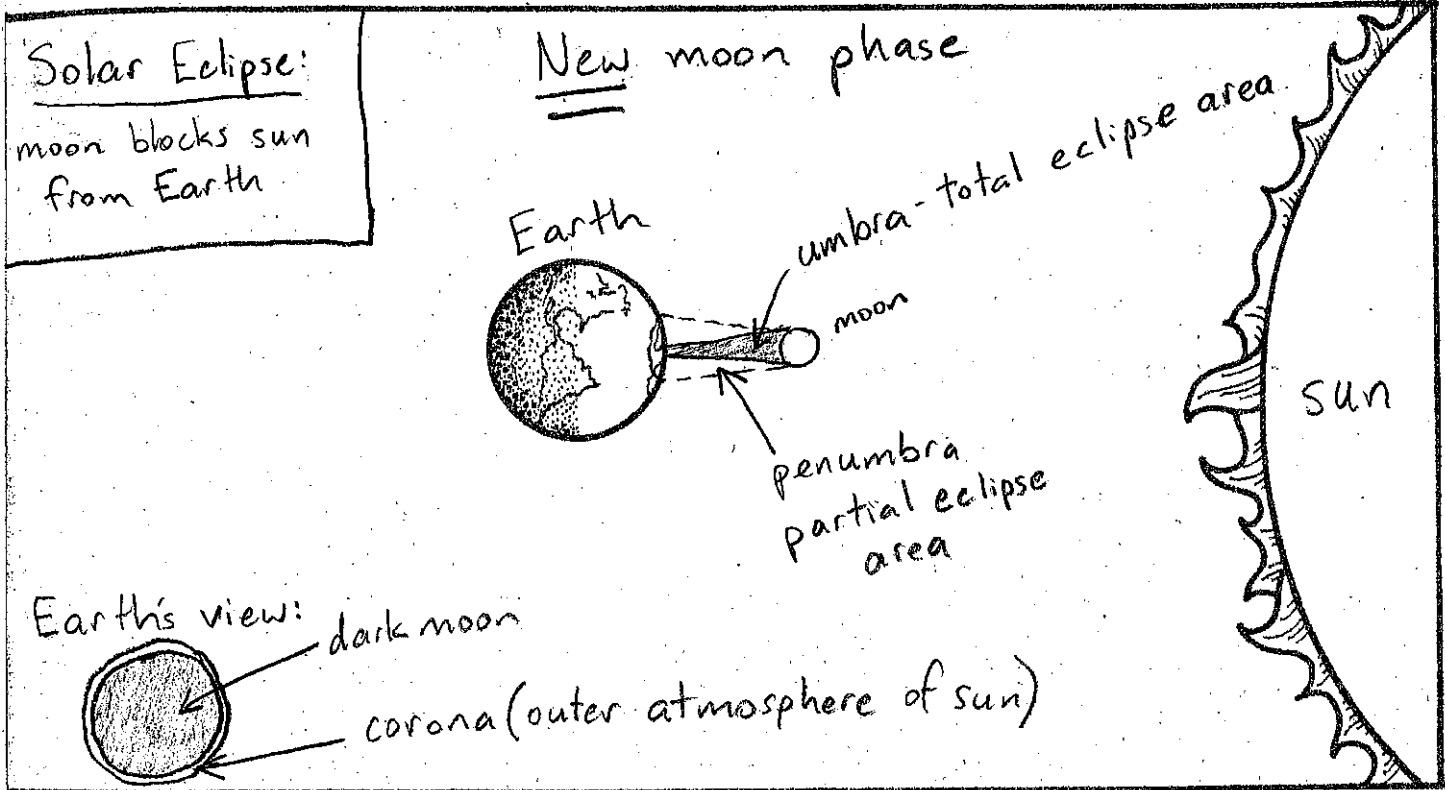 Solar Eclipse:
moon blocks sun
from Earth
New moon phase
Earth
umbra - total eclipse area
moon
sun
penumbra
partial eclipse
area
Earth's view:
dark moon
corona (outer atmosphere of sun)